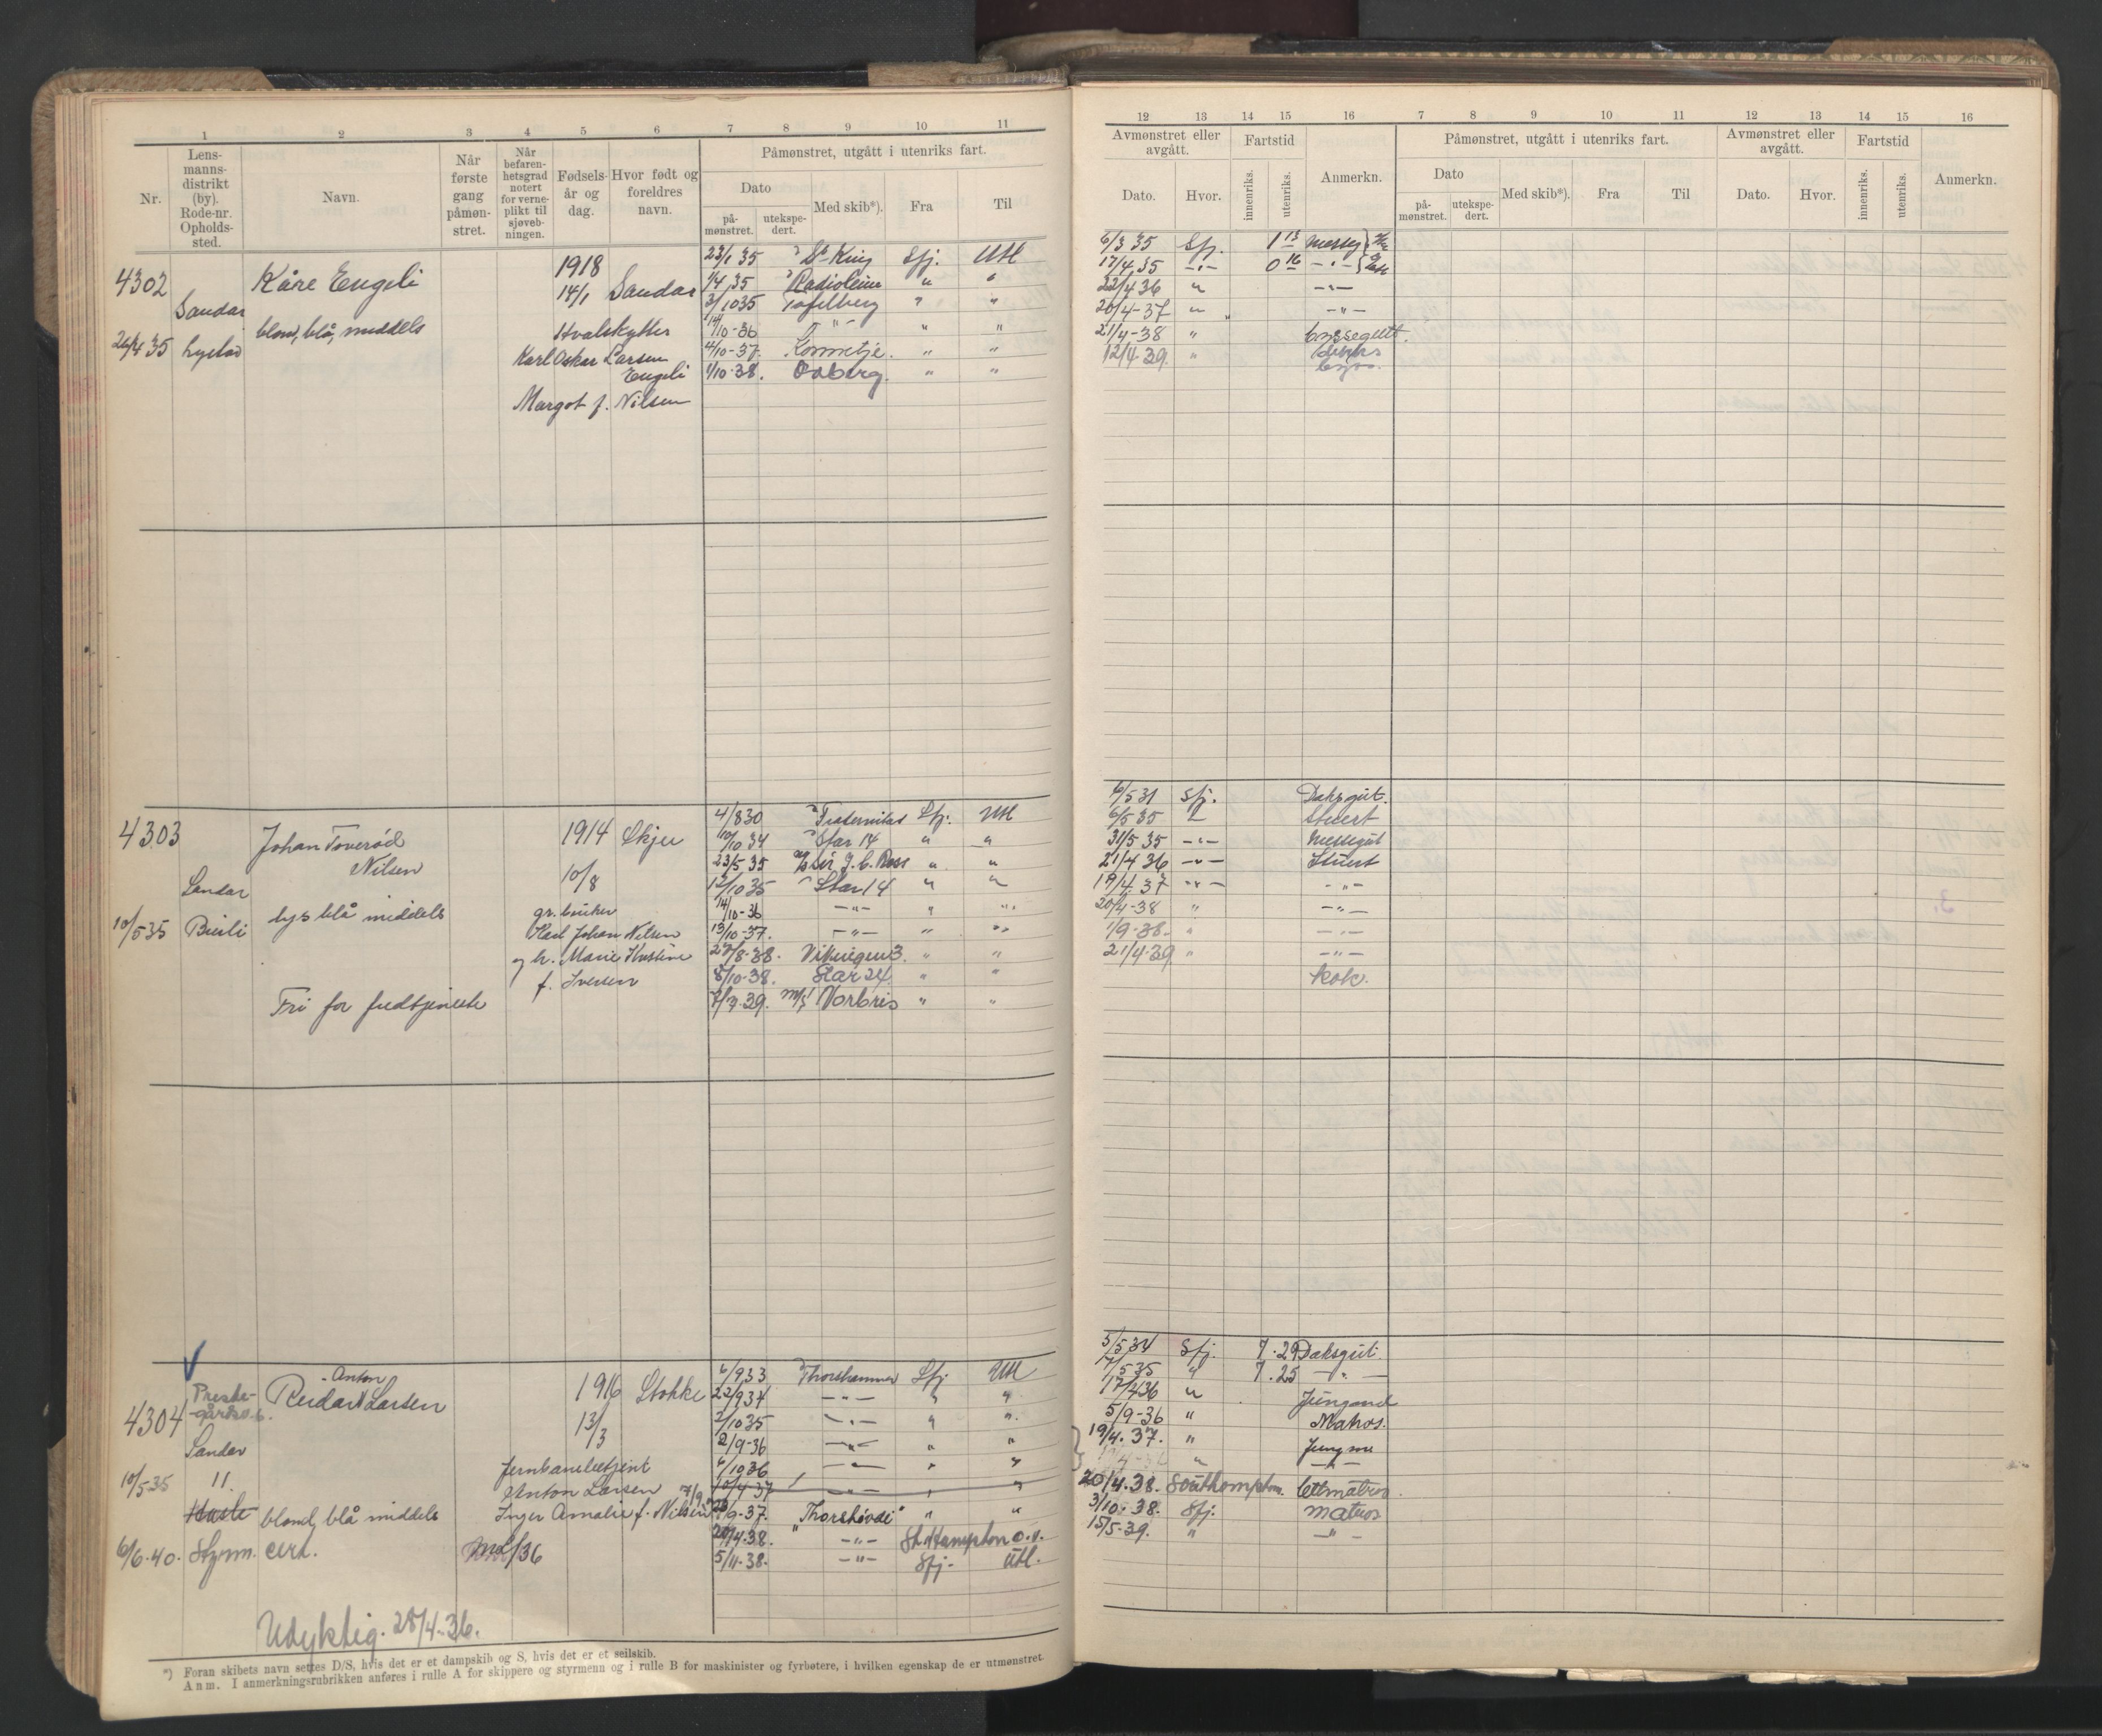 1 2 3 4 5 6 7 8 9 10 11
Nr.
Lens-
manns-
distrikt
(by).
Rode-nr.
Opholds-
sted.
Navn.
Når
første
gang
påmøn-
stret.
Når
befaren-
hetsgrad
notert
for verne-
plikt til
sjøveb-
ningen.
Fødsels-
år og
dag.
Hvor født og
foreldres
navn.
Påmønstret, utgått i utenriks fart.
Dato
på-
mønstret.
utekspe-
dert.
Med skib*).
Fra
Til
4302 Kåre Engeli 1918
Sandar 14/1 Sandar
blond, blå, middels Hvalskytter
26/4 35 Karl Oskar Larsen
Engeli
Margot f. Nilsen
23/1 35 Sfj. Utl
1/4 35 Radioleine " "
3/10 35 Tafelberg " "
14/10-36 -"- " "
4/10-37. Kommetje. " "
1/10-38. Busberg. " "
4303 Johan Toverød 1914 Skjee
Nilsen
Sandar 10/8
lys blå middels gr. bruker
10/5 35 Karl Johan Nilsen
og h. Marie Kristine
f. Iversen
Fri for fredtjeneste
4/8 30 Fraternitas Sfj. Utl
10/10 34 Star 14 " "
23/5 35 Sir J. C. Ross " "
12/10 35 Star 14 " "
14/10-36 -"- " "
13/10-37. -"- " "
27/8-38. Vikingen 3. " "
8/10-38. Star 24. " "
7/7-39. M/S Norbris " "
4304 Preste-
gårdsv. 6.
Reidar Anton Larsen 1916 Stokke
Sandar 13/3
10/5-35 11. Jernbanebetjent
Anton Larsen
blond, blå middels Inger Amalie f. Nilsen
6/6-40. Styrm. cert.
Udyktig. 28/4-36.
6/9 33 Thorshammer Sfj Utl
22/9 34 -"- " "
2/10 35 -"- " "
2/9-36 -"- " "
6/10 36 -"- " "
10/4-37 " "
9-37. "Thorshøvdi" " "
20/4-38. -"- St. Hampton o.v.
5/11-38. -"- Sfj. Utl.
*) Foran skibets navn settes D/S, hvis det er et dampskib og S, hvis det er et seilskib.
Anm. I anmerkningsrubrikken anføres i rulle A for skippere og styrmenn og i rulle B for maskinister og fyrbøtere, i hvilken egenskap de er utmønstret.
12 13 14 15 16 7 8 9 10 11 12 13 14 15 16
Avmønstret eller
avgått.
Dato. Hvor.
Fartstid
innenriks.
utenriks.
Anmerkn.
Påmønstret, utgått i utenriks fart.
Dato
på-
mønstret.
utekspe-
dert.
Med skib*). Fra Til
Avmønstret eller
avgått.
Dato. Hvor.
Fartstid
innenriks.
utenriks.
Anmerkn.
6/3 35 Sfj. 1 13
17/4 35 -"- 0 16 -"-
22/4 36 " -"-
20/4-37 " -"-
21/4-38 " byssegutt.
12/4-39. "
6/5 31 Sfj. Daksgut.
6/5 35 Stuert
31/5 35 -"- Messegut
21/4 36 -"- Stuert
19/4 37 -"- -"-
20/4-38 " -"-
1/9-38. " -"-
21/4-39 " -"-
kok.
5/5 34 Sfj. 7.29 Daksgut.
7/5 35 " 7.25 -"-
17/4 36 " Jungmand
5/9-36 " Matros.
19/4-37. " Jungm
" -"-
20/4-38. Southampton. lettmatros.
3/10-38. Sfj. matros
15/5-39. " -"-